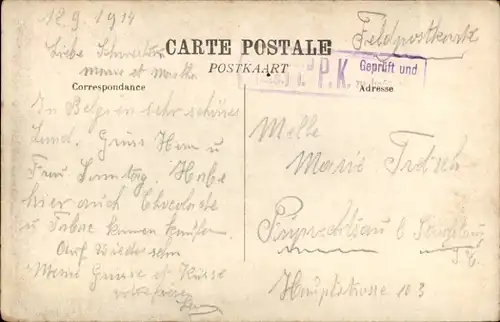 18.9.1914
Liebe Schwestern
Marie et Martha
CARTE POSTALE
Feldpostkarte
POSTKAART
P.K.
Geprüft und
Correspondance
Adresse
In Belgien sehr schönes
Land. Gruss Herrn u
Frau Sonntag. Habe
hier auch Chocolate
u Tabac kaufen
Auf Wiedersehn
Meine Grüsse et Küsse
Melle
Marie
b
Hauptstrasse 103